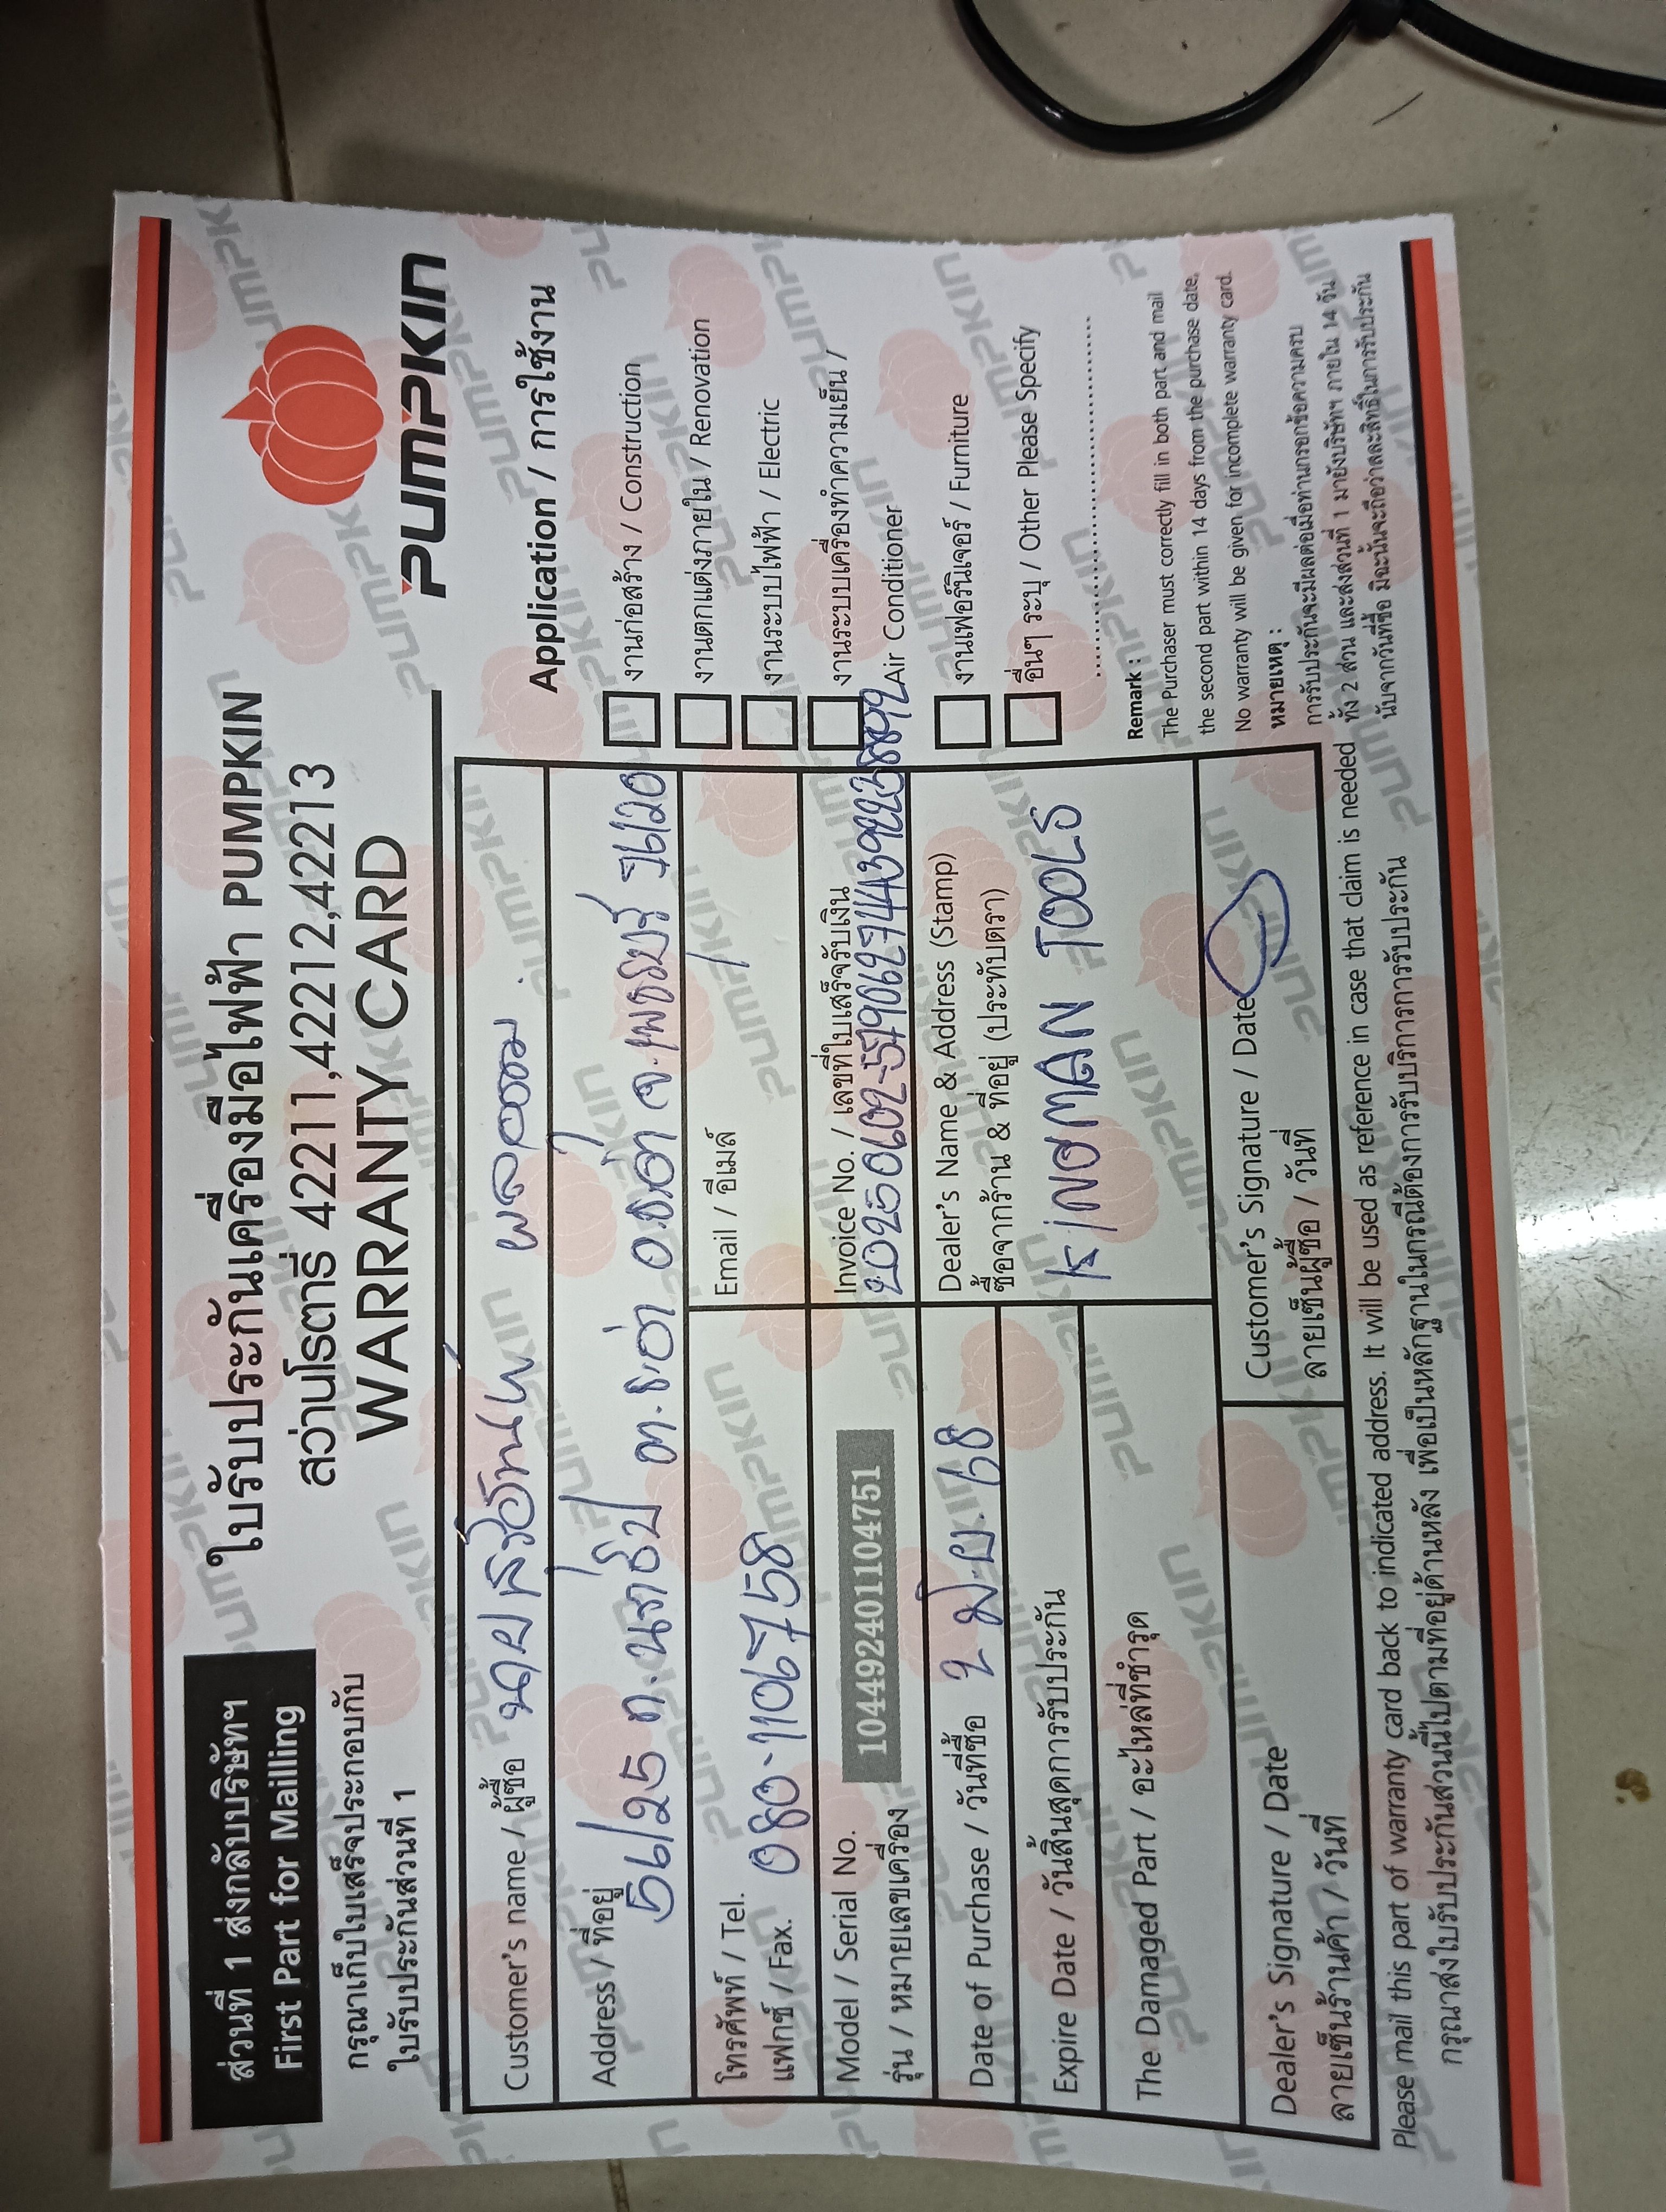 ส่วนที่ 1 ส่งกลับบริษัทฯ
First Part for Mailling
กรุณาเก็บใบเสร็จประกอบกับ
ใบรับประกันส่วนที่ 1
ใบรับประกันเครื่องมือไฟฟ้า PUMPKIN
สว่านโรตารี่ 42211,42212,42213
WARRANTY CARD
PUMPKIN
Customer's name / ผู้ซื้อ นาย
Address / ที่อยู่
56/25 ต.ท่า อ.ท่า จ.เพชรบุรี 76120
โทรศัพท์ / Tel.
แฟกซ์ / Fax. 080-1106758
Email / อีเมล์
Model / Serial No.
รุ่น / หมายเลขเครื่อง
104492401104751
Invoice No. / เลขที่ใบเสร็จรับเงิน
Date of Purchase / วันที่ซื้อ 2 มิ.ย. 68
Dealer's Name & Address (Stamp)
ซื้อจากร้าน & ที่อยู่ (ประทับตรา)
KINGMAN TOOLS
Expire Date / วันสิ้นสุดการรับประกัน
The Damaged Part / อะไหล่ที่ชำรุด
Dealer's Signature / Date
ลายเซ็นร้านค้า / วันที่
Customer's Signature / Date
ลายเซ็นผู้ซื้อ / วันที่
Application / การใช้งาน
งานก่อสร้าง / Construction
งานตกแต่งภายใน / Renovation
งานระบบไฟฟ้า / Electric
งานระบบเครื่องทำความเย็น /
Air Conditioner
งานเฟอร์นิเจอร์ / Furniture
อื่นๆ ระบุ / Other Please Specify
Remark :
The Purchaser must correctly fill in both part and mail
the second part within 14 days from the purchase date.
No warranty will be given for incomplete warranty card.
หมายเหตุ :
การรับประกันจะมีผลต่อเมื่อท่านกรอกข้อความครบ
ทั้ง 2 ส่วน และส่งส่วนที่ 1 มายังบริษัทฯ ภายใน 14 วัน
นับจากวันที่ซื้อ มิฉะนั้นจะถือว่าสละสิทธิ์ในการรับประกัน
Please mail this part of warranty card back to indicated address. It will be used as reference in case that claim is needed
กรุณาส่งใบรับประกันส่วนนี้ไปตามที่อยู่ด้านหลัง เพื่อเป็นหลักฐานในกรณีต้องการรับบริการการรับประกัน